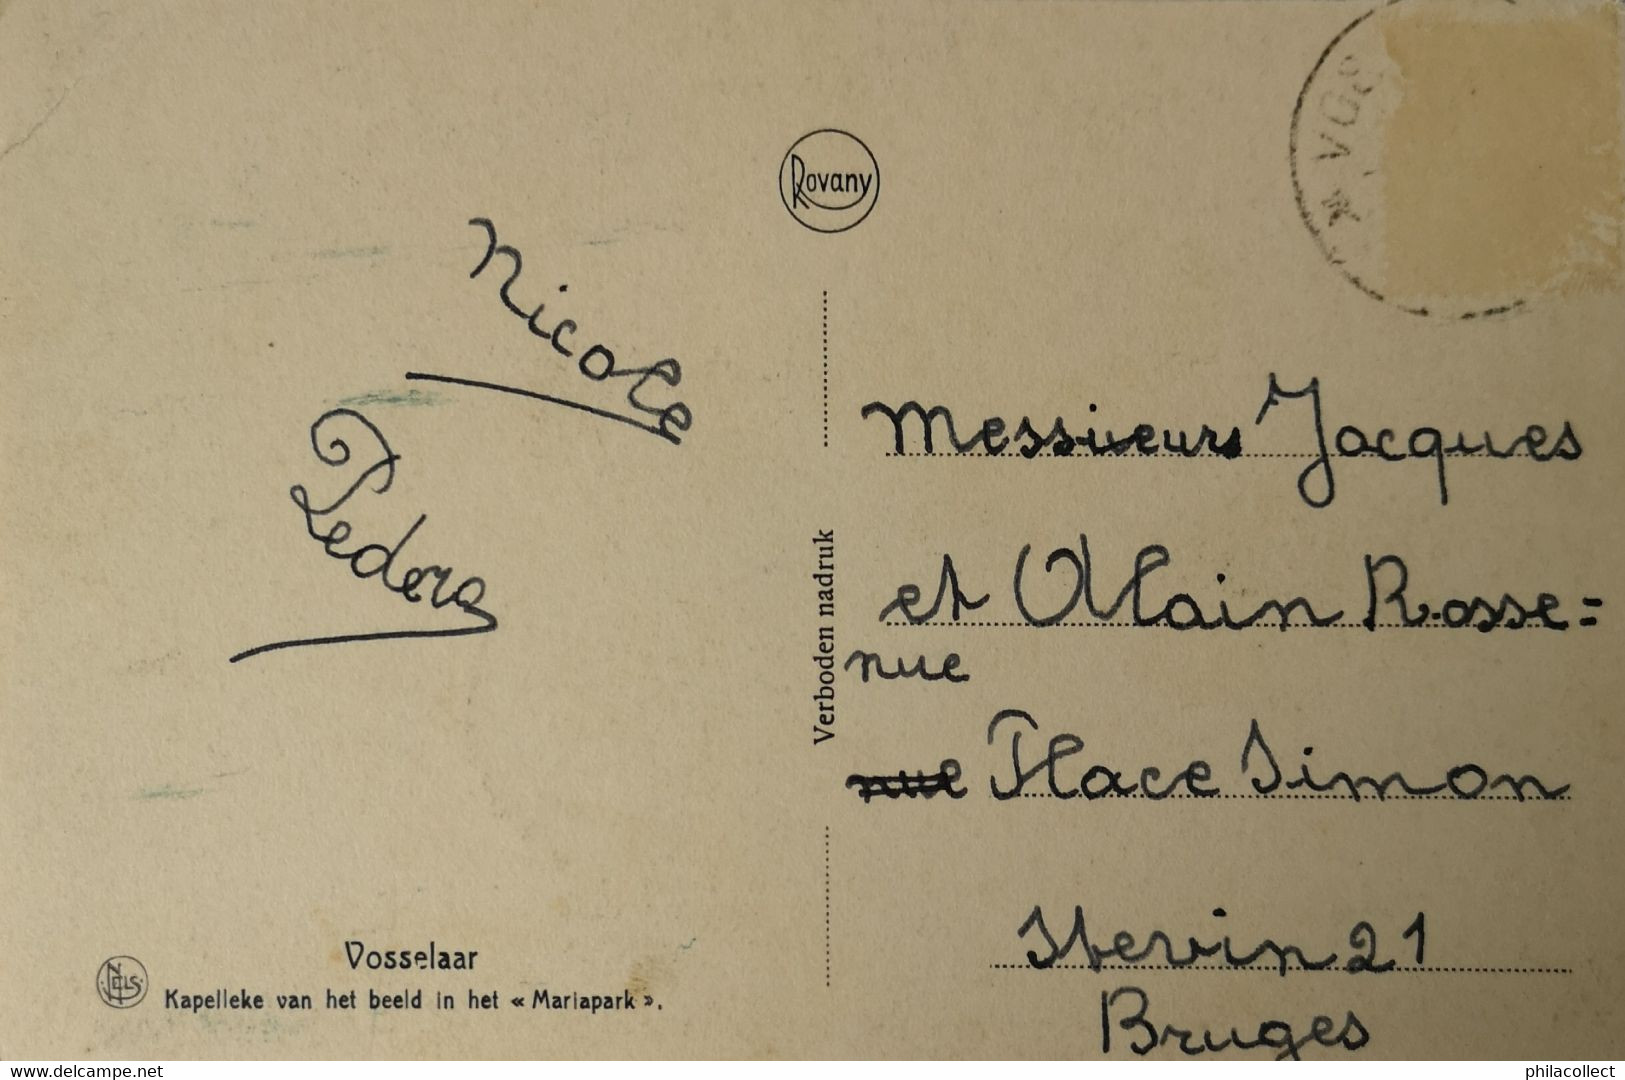 Rovany
VOS
Nicole
Pedera
Verboden nadruk
Messieurs Jacques
et Alain Rosse=
nue
nue Place Simon
Stevin 21
Bruges
NELS
Vosselaar
Kapelleke van het beeld in het « Mariapark ».
www.delcampe.net
philacollect